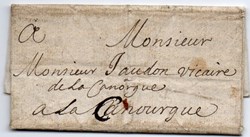 a Monsieur
Monsieur Jaudon vicaire
de la Canorgue
a la Canourgue